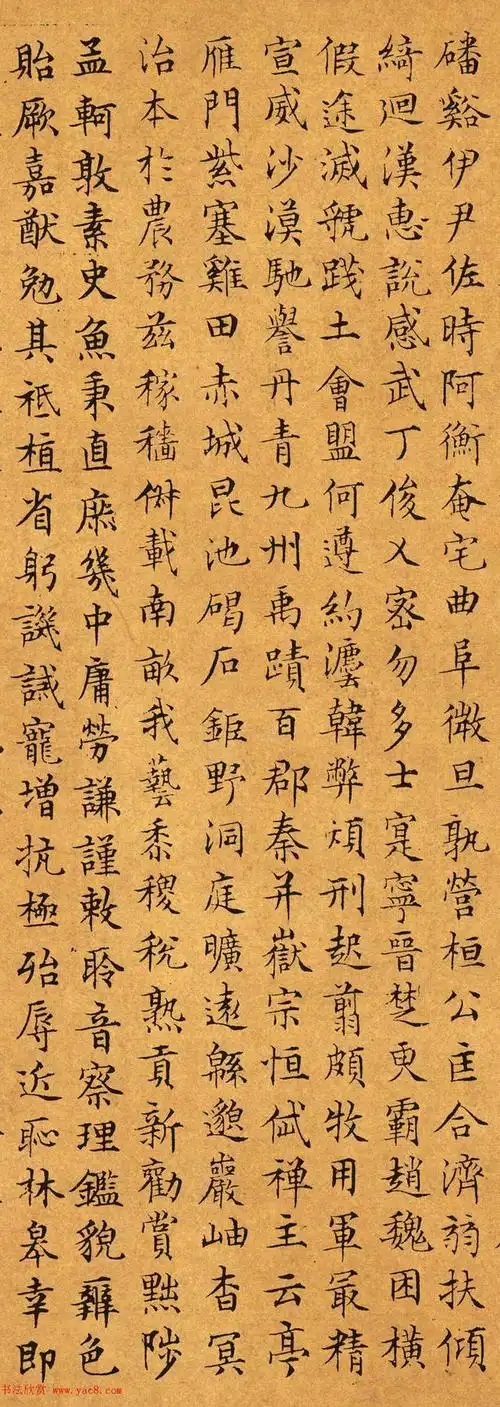 磻谿伊尹佐時阿衡奄宅曲阜微旦孰營桓公匡合濟弱扶傾
綺迴漢惠說感武丁俊乂密勿多士寔寧晉楚更霸趙魏困橫
假途滅虢踐土會盟何遵約灋韓弊煩刑起翦頗牧用軍最精
宣威沙漠馳譽丹青九州禹蹟百郡秦并嶽宗恒岱禪主云亭
雁門紫塞雞田赤城昆池碣石鉅野洞庭曠遠緜邈巖岫杳冥
治本於農務茲稼穡俶載南畝我藝黍稷稅熟貢新勸賞黜陟
孟軻敦素史魚秉直庶幾中庸勞謙謹敕聆音察理鑑貌辨色
貽厥嘉猷勉其祗植省躬譏誡寵增抗極殆辱近恥林皋幸即
书法欣赏 www.yac8.com